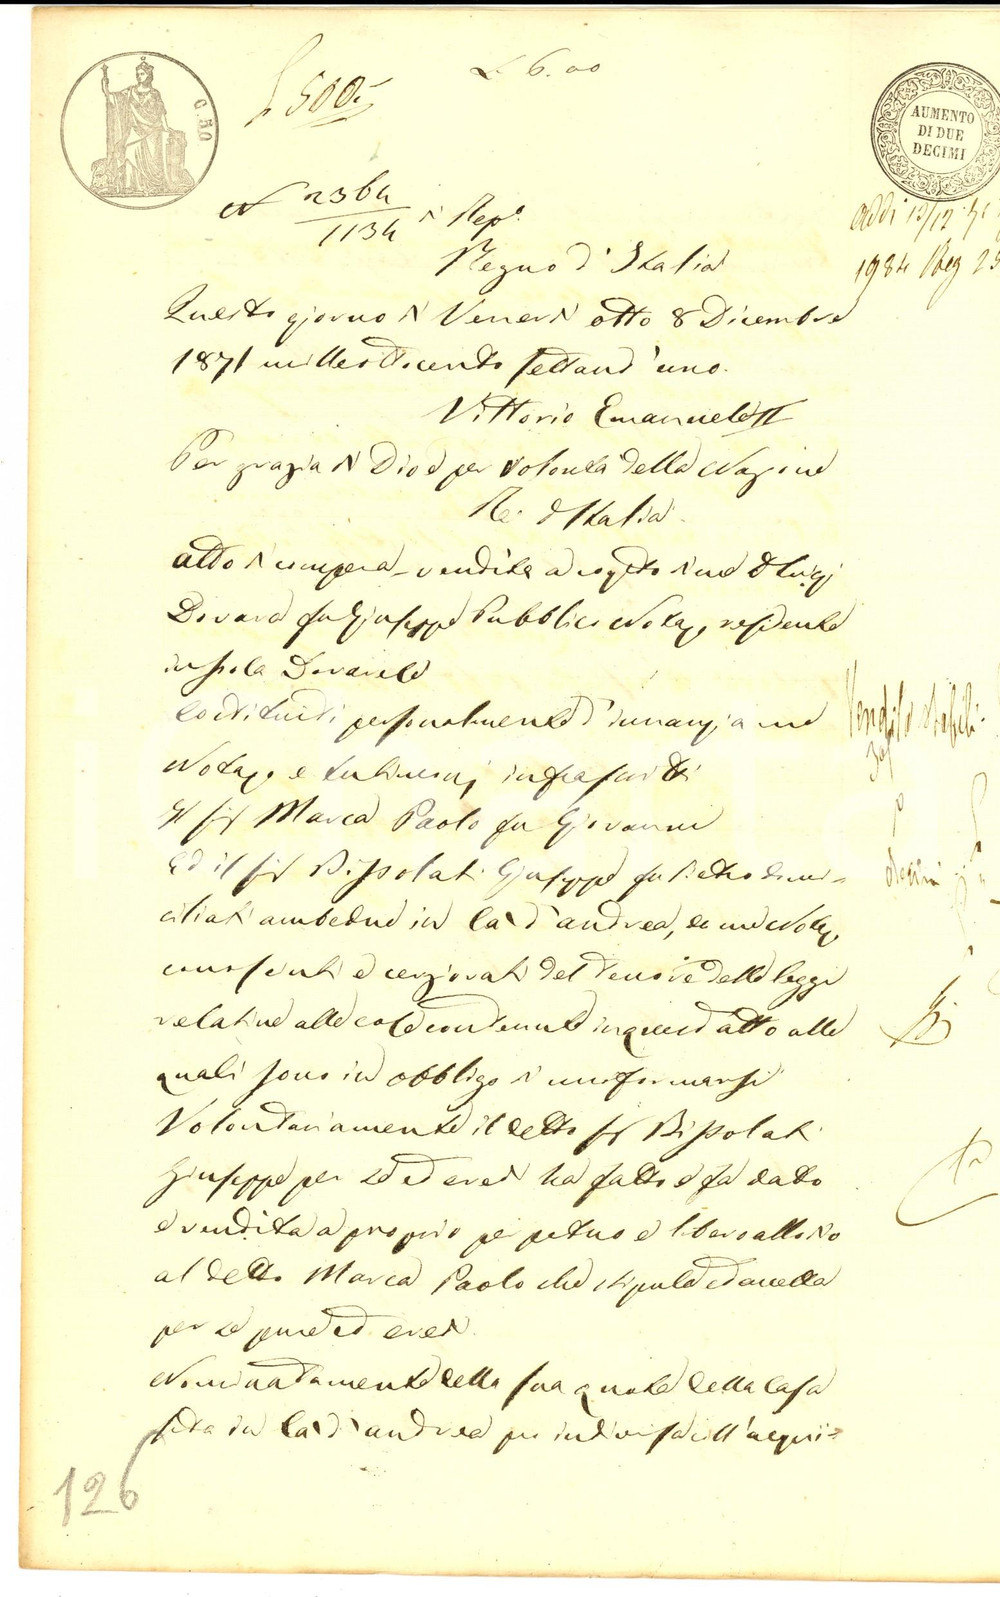 C. 50
£ 500.
L 6.00
AUMENTO
DI DUE
DECIMI
N 2364
1134 di Repº
Addi 13/12 71
1984 Reg 25
Regno d'Italia
Questo giorno di Venerdi otto 8 Dicembre
1871 milleottocento settant'uno.
Vittorio Emanuele II
Per grazia di Dio e per volonta della Nazione
Re d'Italia
Atto di compera-vendita a rogito di me Dr Luigi
Dovara fu Giuseppe Pubblico Notajo residente
in Isola Dovarese
Costituiti personalmente d'innanzi a me
Notajo e testimonj infrascritti
Il sig Marca Paolo fu Giovanni
Ed il sig Bissolati Giuseppe fu Pietro domi-
ciliati ambedue in Ca d'andrea, da me Notajo
conosciuti e cerziorati del tenore delle leggi
relative alle cose contenute in quest atto alle
quali sono in obbligo di uniformarsi
Volontariamente il detto sig Bissolati
Giuseppe per se ed eredi ha fatto e fa dato
e vendita a proprio perpetuo e libero allodio
al detto Marca Paolo che stipula ed accetta
per se pure ed eredi.
Nominatamente della sua quota della casa
sita in Ca d'andrea pro indivisa coll'acqui-
Vendita Stabili
126